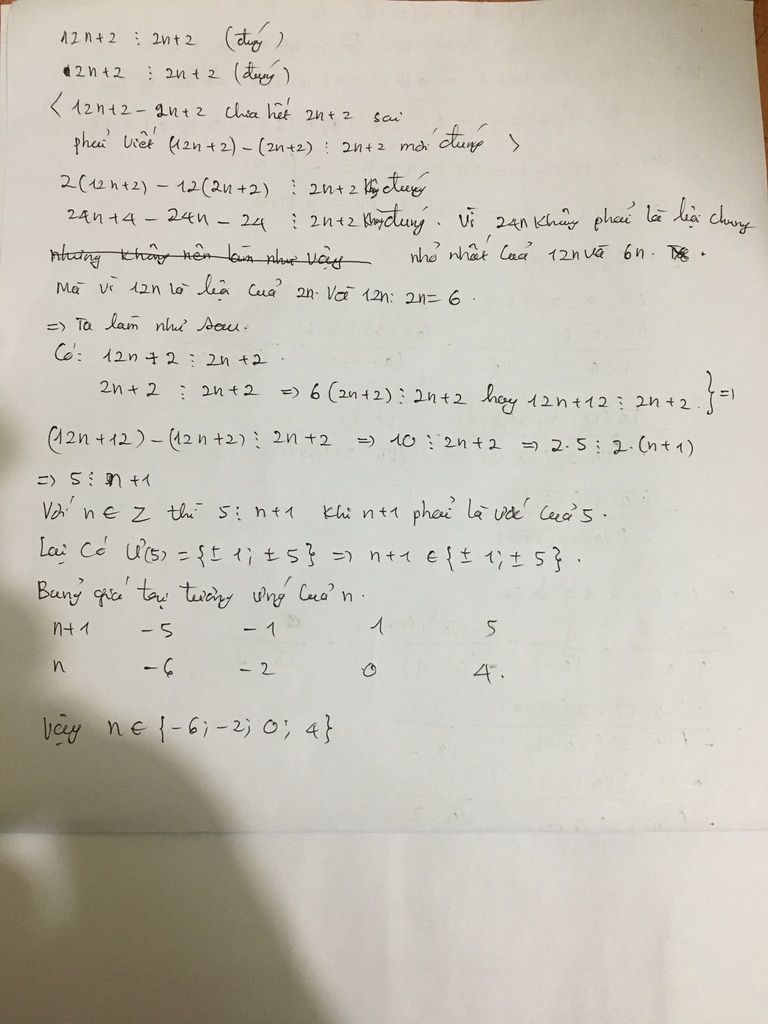 12n+2 ⋮ 2n+2 (đúng)
2n+2 ⋮ 2n+2 (đúng)
< 12n+2 - 2n+2 chia hết 2n+2 sai
phải viết (12n+2) - (2n+2) ⋮ 2n+2 mới đúng >
2(12n+2) - 12(2n+2) ⋮ 2n+2 không đúng
24n+4 - 24n - 24 ⋮ 2n+2 không đúng. Vì 24n không phải là bội chung
nhưng không nên làm như vậy nhỏ nhất của 12n và 6n.
Mà vì 12n là bội của 2n. Và 12n: 2n = 6.
=> Ta làm như sau.
Có: 12n + 2 ⋮ 2n + 2.
2n + 2 ⋮ 2n + 2 => 6(2n+2) ⋮ 2n+2 hay 12n+12 ⋮ 2n+2. } =>
(12n+12) - (12n+2) ⋮ 2n+2 => 10 ⋮ 2n+2 => 2.5 ⋮ 2.(n+1)
=> 5 ⋮ n+1
Với n ∈ Z thì 5 ⋮ n+1 khi n+1 phải là ước của 5.
Lại có Ư(5) = {± 1; ± 5} => n+1 ∈ {± 1; ± 5}.
Bảng giá trị tương ứng của n.
n+1 -5 -1 1 5
n -6 -2 0 4.
Vậy n ∈ {-6; -2; 0; 4}